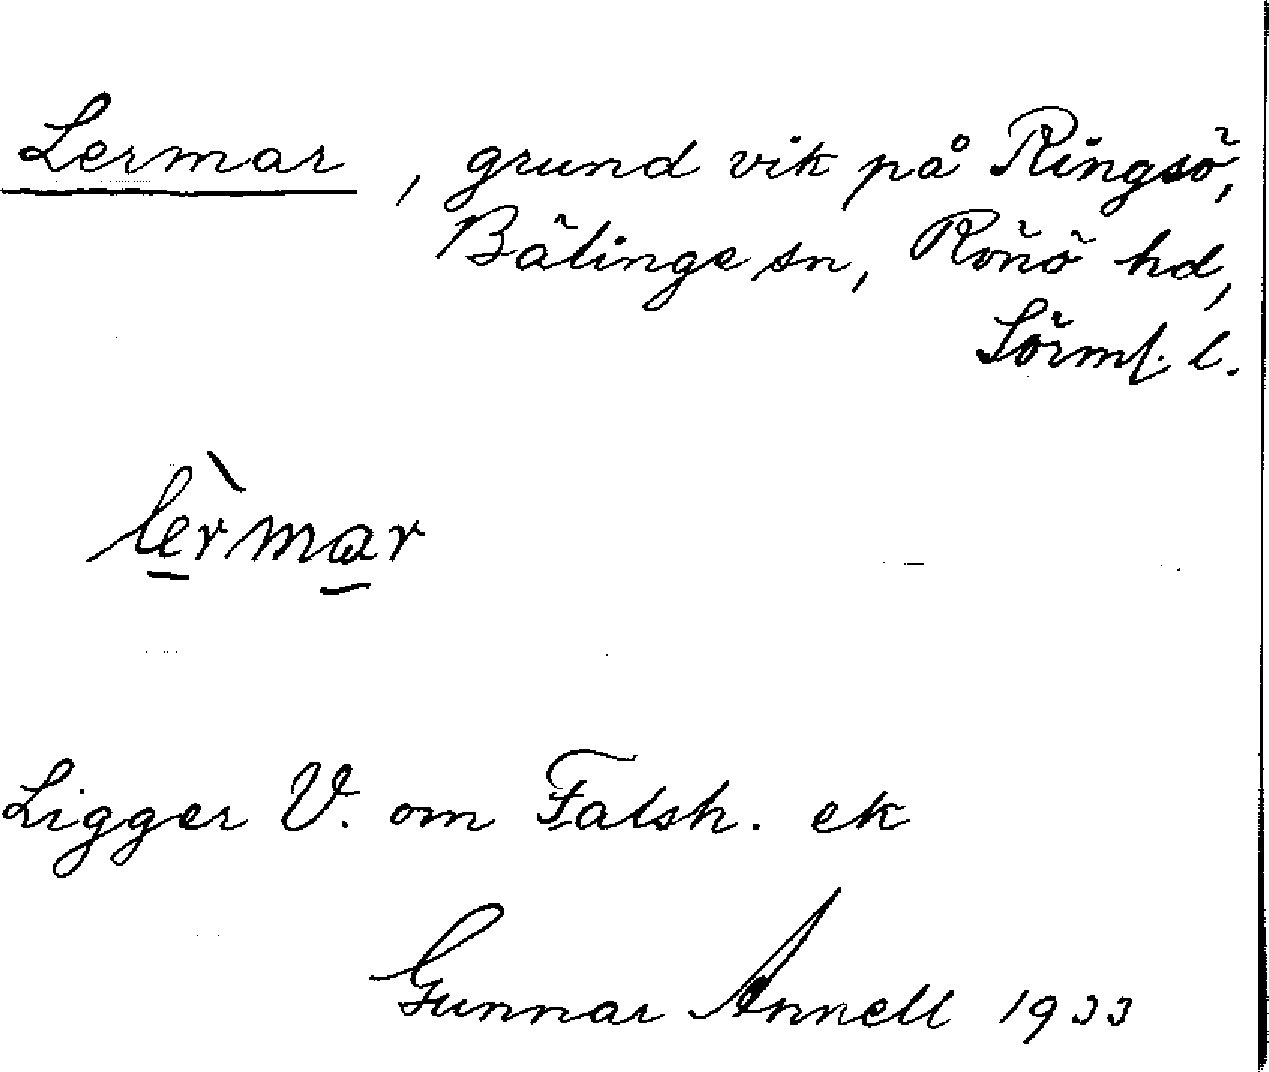 Lermar, grund vik på Ringsö,
Bälinge sn, Rönö hd,
Sörml. l.
lèrmar
Ligger V. om Falsh. ek
Gunnar Annell 1933